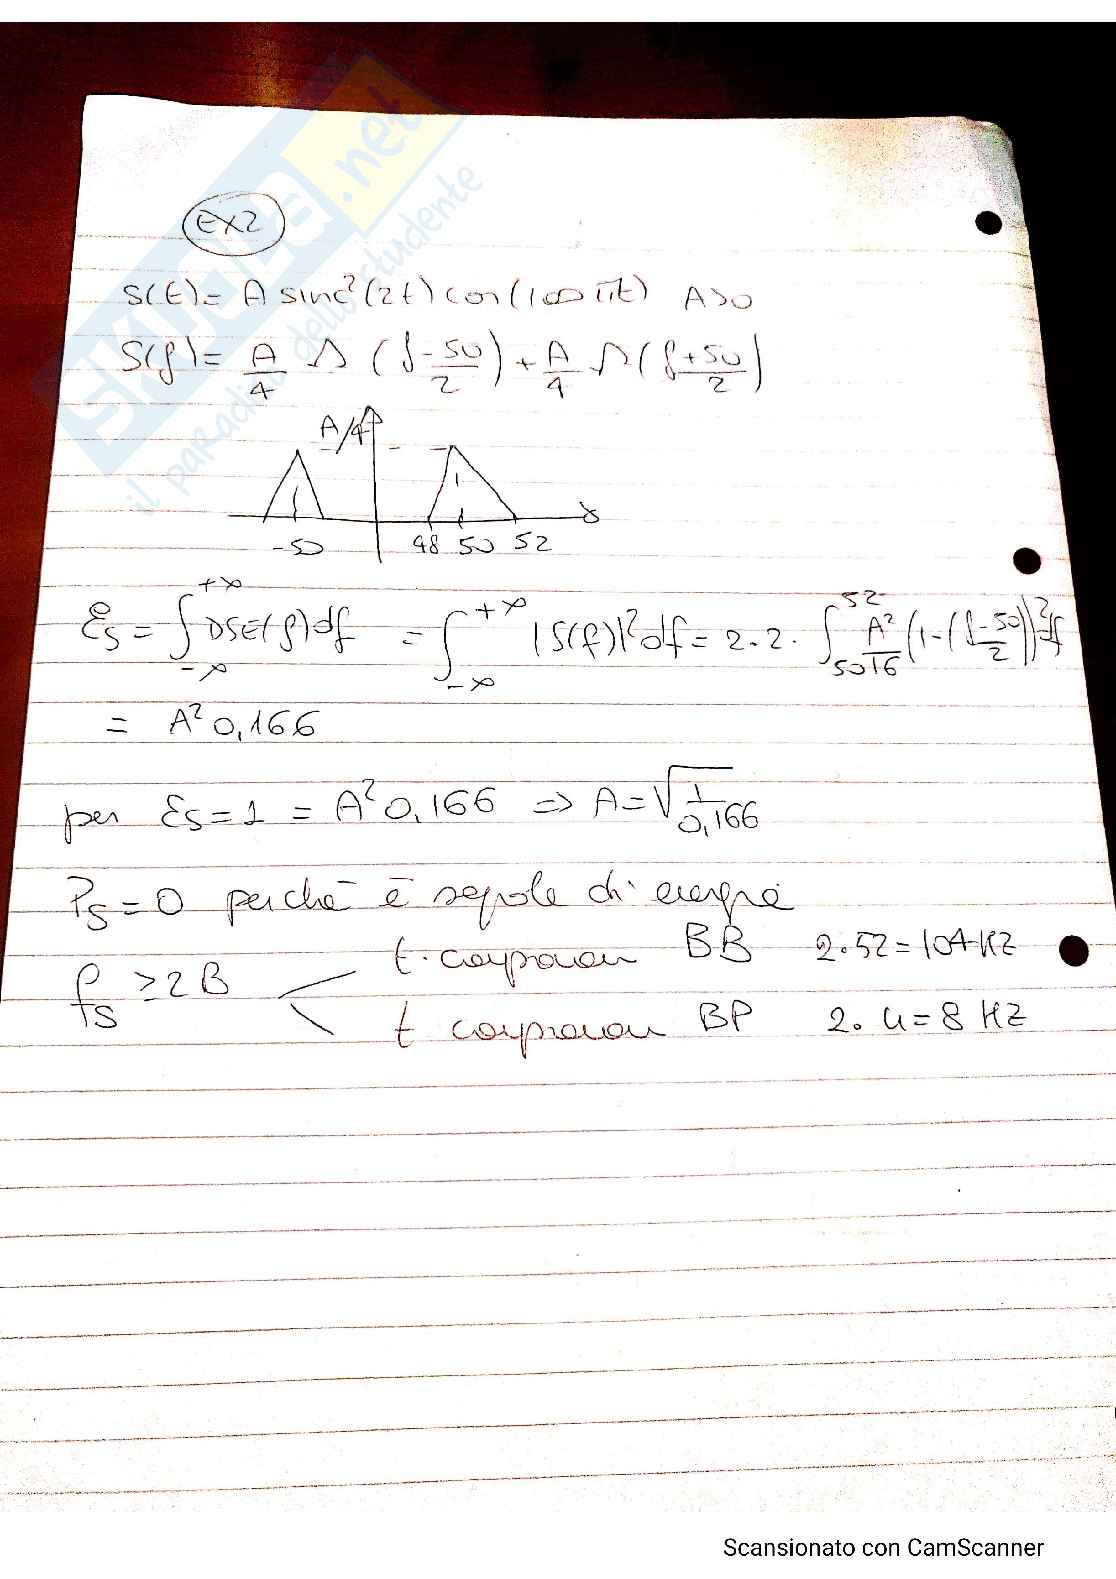 SKUOLA.net
il paradiso dello studente
EX2
S(t)= A sinc²(2t) cos(100πt) A>0
S(f)= A/4 Λ (f-50/2) + A/4 Λ (f+50/2)
A/4
-50 48 50 52
Es = ∫_{-∞}^{+∞} DSE(f)df = ∫_{-∞}^{+∞} |S(f)|²df = 2·2· ∫_{50}^{52} A²/16 (1-(f-50/2))² df
= A² 0,166
per Es=1 = A² 0,166 => A=√(1/0,166)
Ps=0 perchè è segnale di energia
fs ≥2B
t. campionam BB 2.52=104HZ
t campionam BP 2. 4=8 HZ
Scansionato con CamScanner